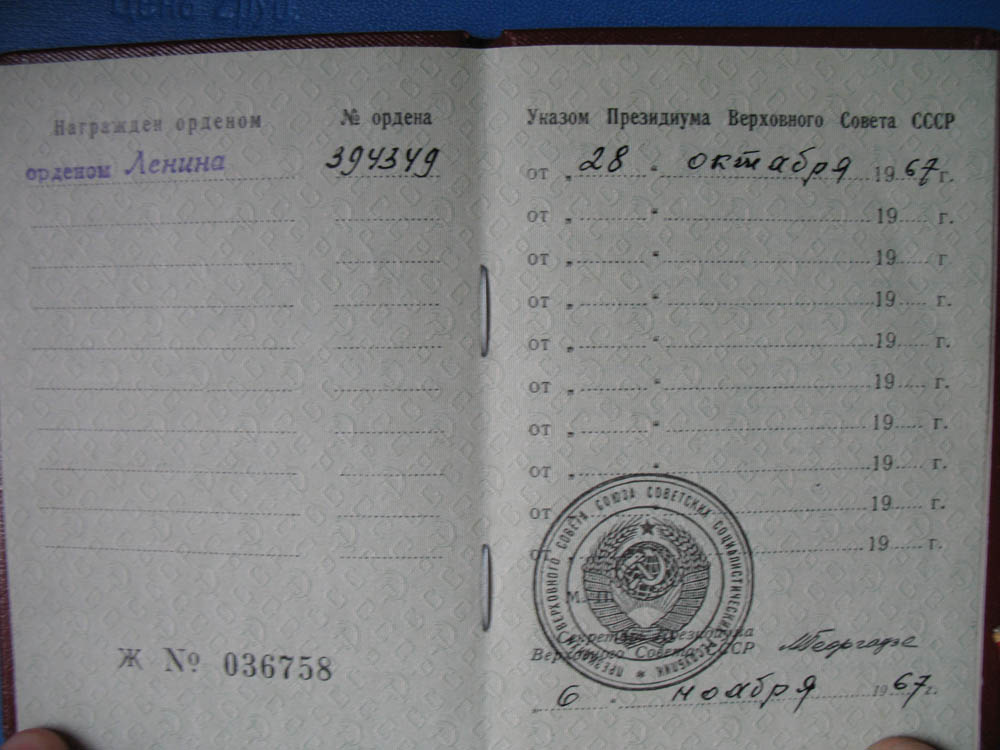 Цена 2руб.
Награждён орденом
№ ордена
орденом Ленина
394349
Ж № 036758
Указом Президиума Верховного Совета СССР
от „ 28 “ октября 19 67 г.
от „ “ 19 г.
от „ “ 19 г
от „ “ 19 г.
от „ “ 19 г.
от „ “ 19 г.
от „ “ 19 г.
от „ “ 19 г.
от „ “ 19 г.
от „ “ 19 г.
ПРЕЗИДИУМ ВЕРХОВНОГО СОВЕТА СОЮЗА СОВЕТСКИХ СОЦИАЛИСТИЧЕСКИХ РЕСПУБЛИК
М. П.
Секретарь Президиума
Верховного Совета СССР
МГеоргадзе
„ 6 “ ноября 19 67 г.